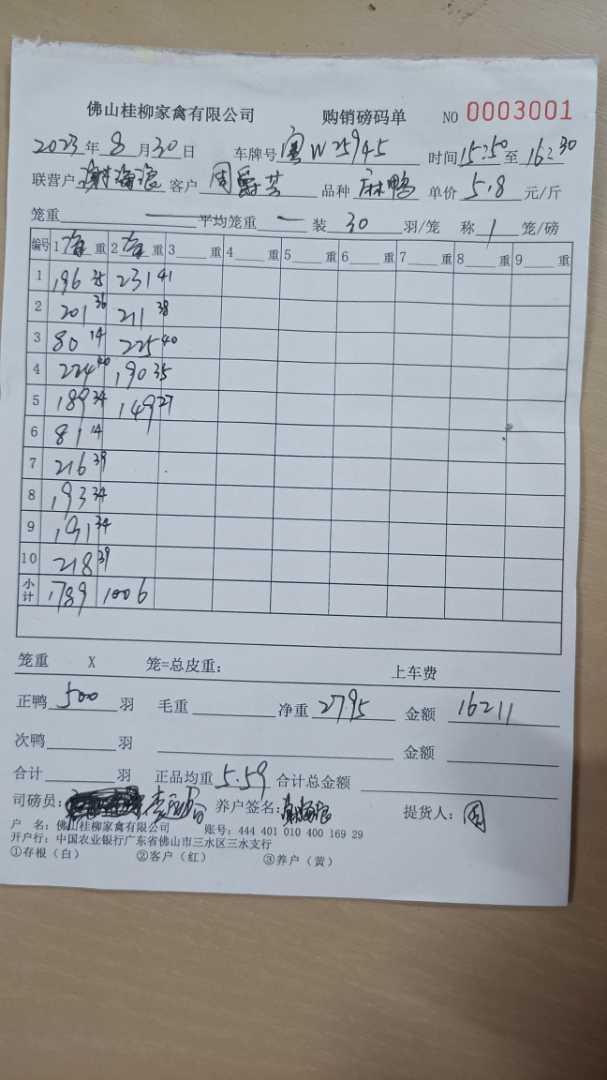 佛山桂柳家禽有限公司 购销磅码单 NO 0003001
2023年8月30日 车牌号 粤W25945 时间15:50至16:30
联营户 谢海浪 客户 周爵芬 品种 麻鸭 单价 5.8 元/斤
笼重 — 平均笼重 — 装 30 羽/笼 称 1 笼/磅
编号 1 重 2 重 3 重 4 重 5 重 6 重 7 重 8 重 9 重
1 196 35 231 41
2 201 36 211 38
3 80 14 225 40
4 224 40 190 35
5 189 34 149 27
6 81 14
7 216 39
8 193 34
9 191 34
10 218 39
小计 1789 1006
笼重 X 笼=总皮重: 上车费
正鸭 500 羽 毛重 净重 2795 金额 16211
次鸭 羽 金额
合计 羽 正品均重 5.59 合计总金额
司磅员: 养户签名: 提货人: 周
户 名: 佛山桂柳家禽有限公司 账号: 444 401 010 400 169 29
开户行: 中国农业银行广东省佛山市三水区三水支行
①存根(白) ②客户(红) ③养户(黄)